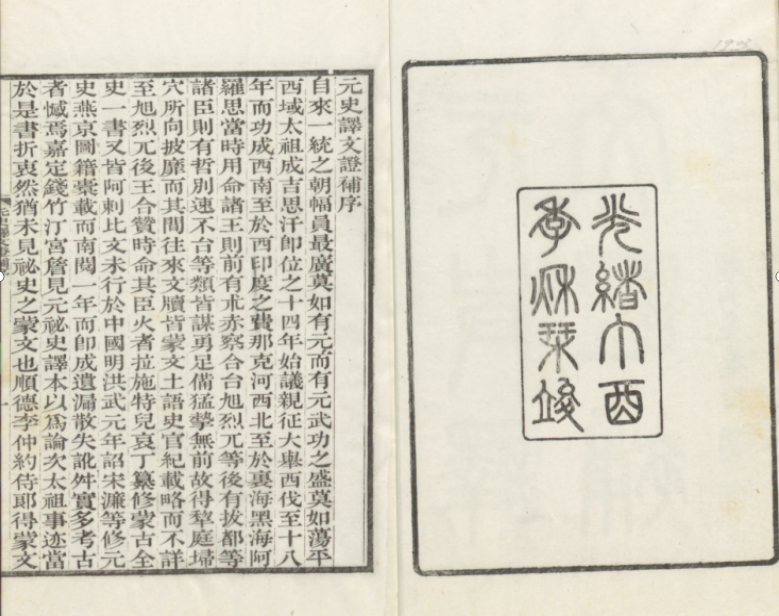 光緒丁酉
季秋栞竣
元史譯文證補序
自來一統之朝幅員最廣莫如有元而有元武功之盛莫如蕩平
西域太祖成吉思汗卽位之十四年始議親征大舉西伐至十八
年而功成西南至於西印度之費那克河西北至於裏海黑海阿
羅思當時用命諸王則前有朮赤察合台旭烈兀等後有拔都等
諸臣則有哲別速不台等類皆謀勇足備猛摯無前故得犂庭埽
穴所向披靡而其間往來文牘皆蒙文土語史官紀載略而不詳
至旭烈兀後王合贊時命其臣火者拉施特兒哀丁纂修蒙古全
史一書又皆阿剌比文未行於中國明洪武元年詔宋濂等修元
史燕京圖籍橐載而南閱一年而卽成遺漏散失訛舛實多考古
者憾焉嘉定錢竹汀宮詹見元祕史譯本以爲論次太祖事迹當
於是書折衷然猶未見祕史之蒙文也順德李仲約侍郎得蒙文